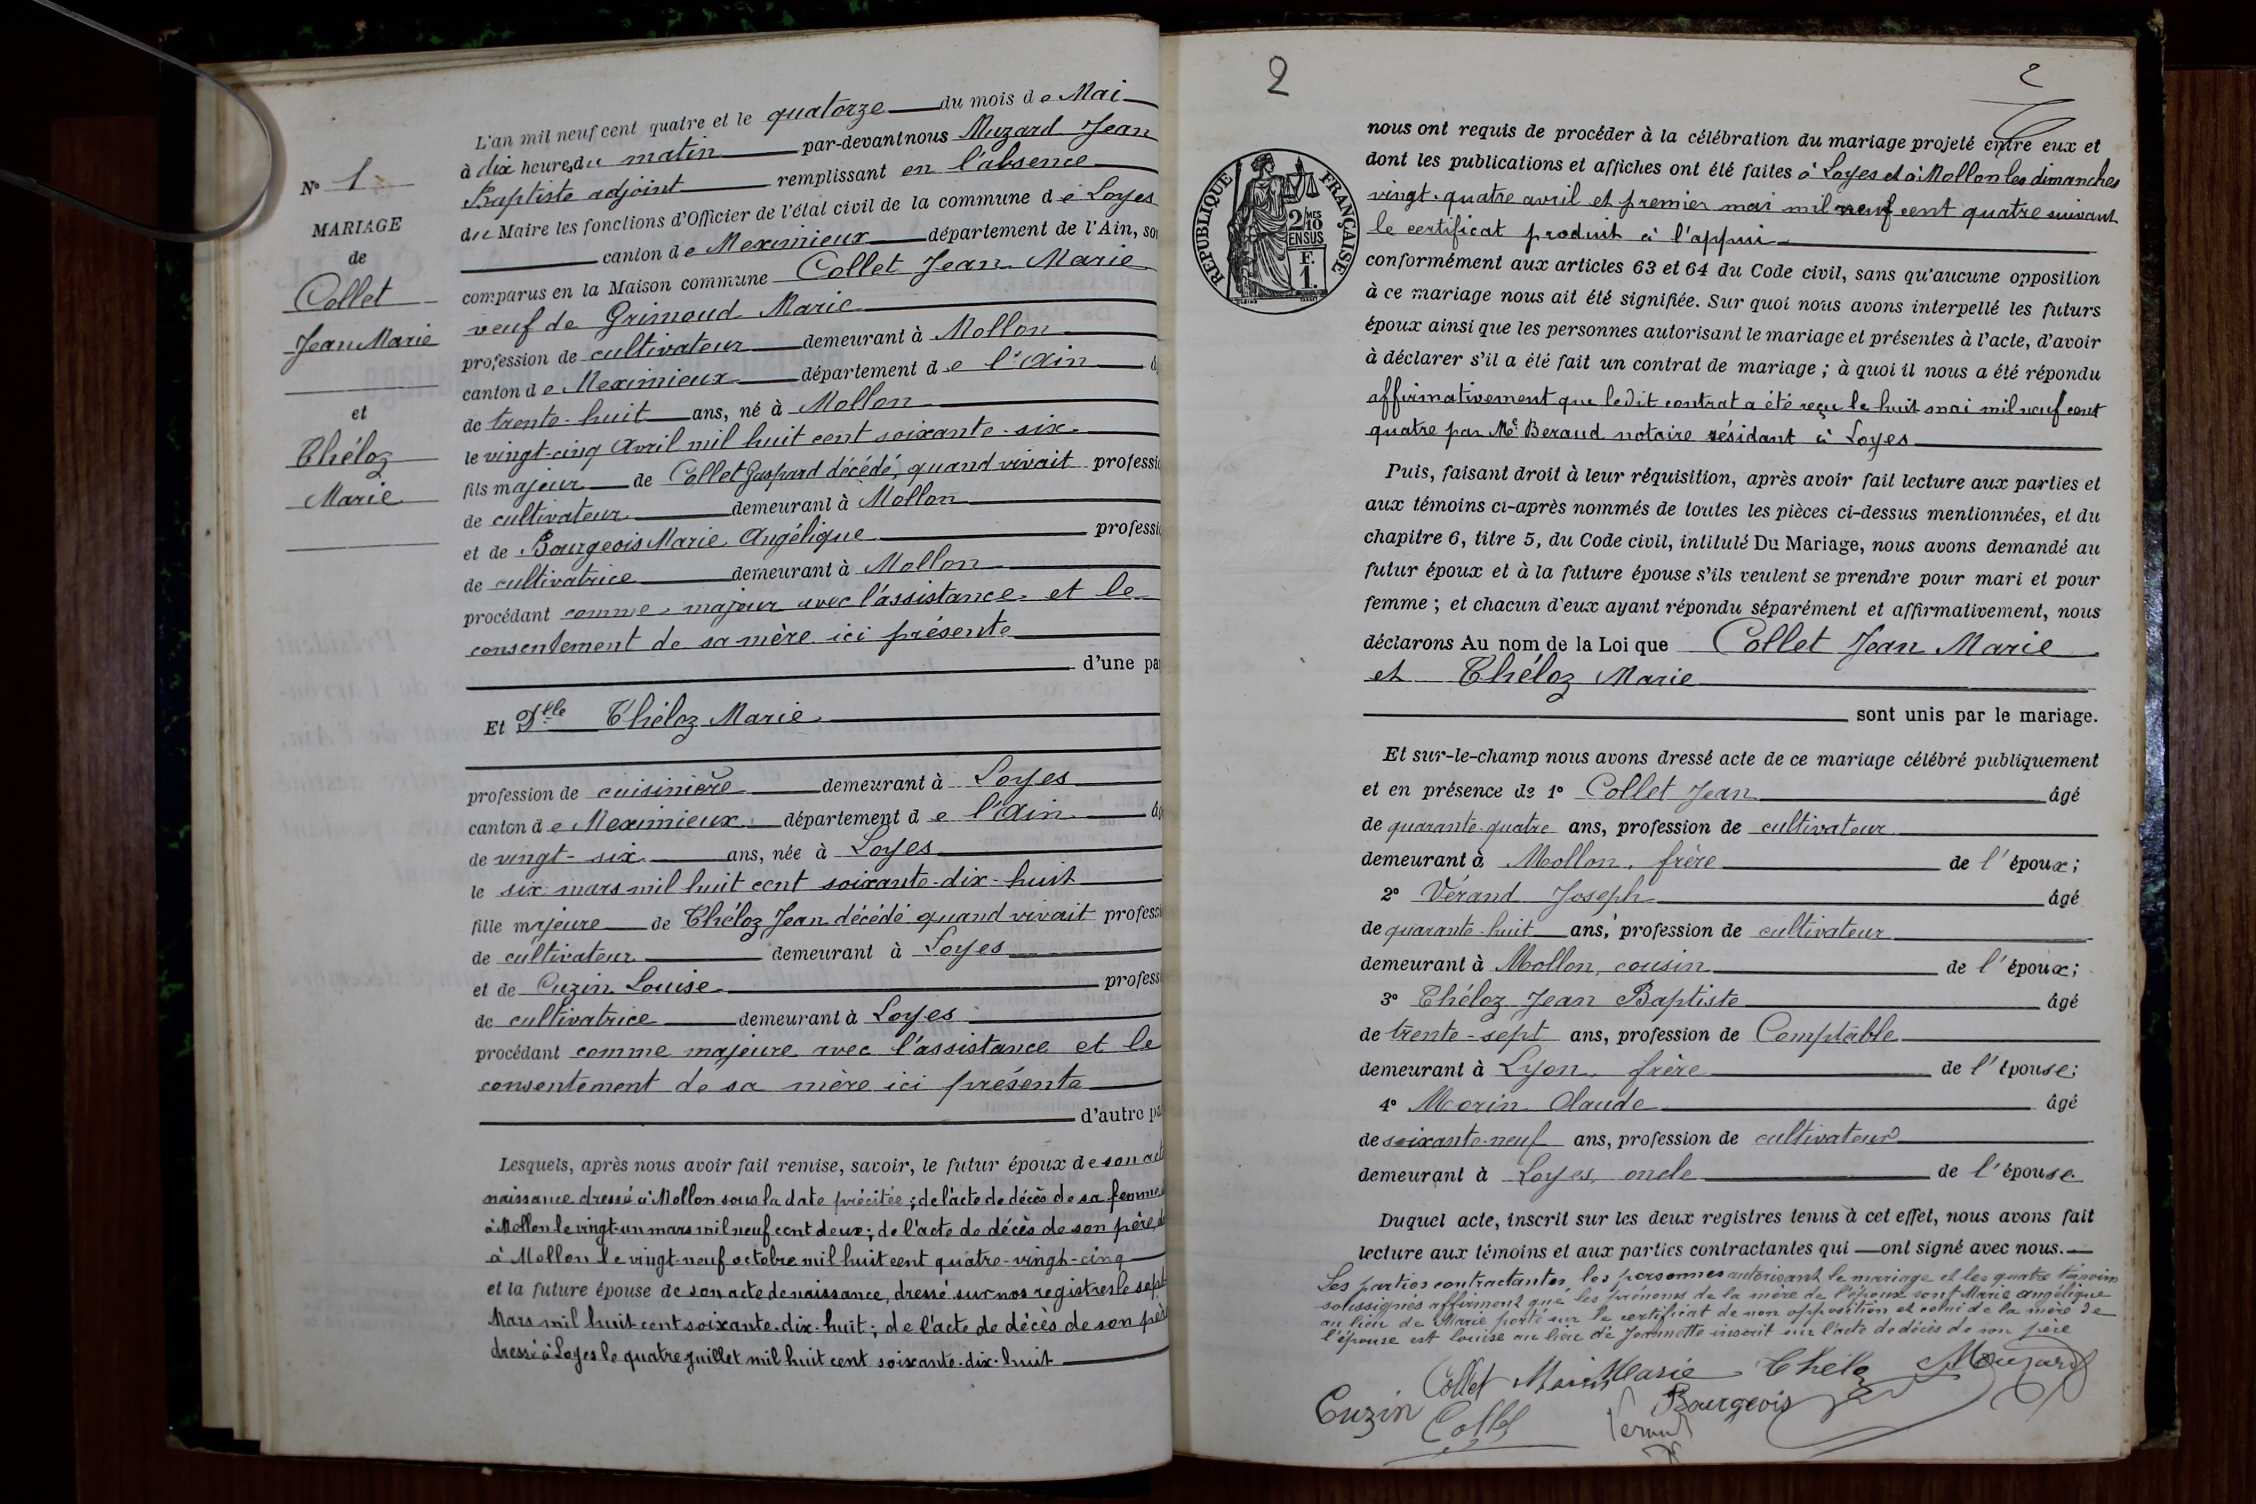 N° 1
MARIAGE
de
Collet
Jean Marie
et
Théloz
Marie
L'an mil neuf cent quatre et le quatorze du mois de Mai
à dix heures du matin par-devant nous Muzard Jean
Baptiste adjoint remplissant en l'absence
du Maire les fonctions d'Officier de l'état civil de la commune de Loyes
canton de Meximieux département de l'Ain, so
comparus en la Maison commune Collet Jean Marie
veuf de Grimoud Marie
profession de cultivateur demeurant à Mollon
canton de Meximieux département de l'Ain
de trente-huit ans, né à Mollon
le vingt-cinq Avril mil huit cent soixante-six
fils majeur de Collet Gaspard décédé, quand vivait professi
de cultivateur demeurant à Mollon
et de Bourgeois Marie Angélique professi
de cultivatrice demeurant à Mollon
procédant comme majeur avec l'assistance et le
consentement de sa mère ici présente
d'une pa
Et Dlle Théloz Marie
profession de cuisinière demeurant à Loyes
canton de Meximieux département de l'Ain âg
de vingt-six ans, née à Loyes
le six mars mil huit cent soixante-dix-huit
fille majeure de Théloz Jean décédé quand vivait profess
de cultivateur demeurant à Loyes
et de Cuzin Louise profess
de cultivatrice demeurant à Loyes
procédant comme majeure avec l'assistance et le
consentement de sa mère ici présente
d'autre pa
Lesquels, après nous avoir fait remise, savoir, le futur époux de son act
naissance dressé à Mollon sous la date précitée ; de l'acte de décès de sa femme
à Mollon le vingt-un mars mil neuf cent deux ; de l'acte de décès de son père,
à Mollon le vingt-neuf octobre mil huit cent quatre-vingt-cinq
et la future épouse de son acte de naissance, dressé sur nos registres le sept
Mars mil huit cent soixante-dix-huit ; de l'acte de décès de son père
dressé à Loyes le quatre juillet mil huit cent soixante-dix-huit
2
2
RÉPUBLIQUE FRANÇAISE
2/10 MES
EN SUS
F.
1.
nous ont requis de procéder à la célébration du mariage projeté entre eux et
dont les publications et affiches ont été faites à Loyes et à Mollon les dimanches
vingt-quatre avril et premier mai mil neuf cent quatre suivant
le certificat produit à l'appui
conformément aux articles 63 et 64 du Code civil, sans qu'aucune opposition
à ce mariage nous ait été signifiée. Sur quoi nous avons interpellé les futurs
époux ainsi que les personnes autorisant le mariage et présentes à l'acte, d'avoir
à déclarer s'il a été fait un contrat de mariage ; à quoi il nous a été répondu
affirmativement que ledit contrat a été reçu le huit mai mil neuf cent
quatre par Me Beraud notaire résidant à Loyes
Puis, faisant droit à leur réquisition, après avoir fait lecture aux parties et
aux témoins ci-après nommés de toutes les pièces ci-dessus mentionnées, et du
chapitre 6, titre 5, du Code civil, intitulé Du Mariage, nous avons demandé au
futur époux et à la future épouse s'ils veulent se prendre pour mari et pour
femme ; et chacun d'eux ayant répondu séparément et affirmativement, nous
déclarons Au nom de la Loi que Collet Jean Marie
et Théloz Marie
sont unis par le mariage.
Et sur-le-champ nous avons dressé acte de ce mariage célébré publiquement
et en présence de 1° Collet Jean âgé
de quarante-quatre ans, profession de cultivateur
demeurant à Mollon, frère de l'époux ;
2° Vérand Joseph âgé
de quarante-huit ans, profession de cultivateur
demeurant à Mollon, cousin de l'époux ;
3° Théloz Jean Baptiste âgé
de trente-sept ans, profession de Comptable
demeurant à Lyon, frère de l'épouse ;
4° Morin Claude âgé
de soixante-neuf ans, profession de cultivateur
demeurant à Loyes, oncle de l'épouse
Duquel acte, inscrit sur les deux registres tenus à cet effet, nous avons fait
lecture aux témoins et aux parties contractantes qui ont signé avec nous.
Les parties contractantes, les personnes autorisant le mariage et les quatre témoins
soussignés affirment que les prénoms de la mère de l'époux sont Marie Angélique
au lieu de Marie porté sur le certificat de non opposition et celui de la mère de
l'épouse est Louise au lieu de Jeannette inscrit sur l'acte de décès de son père
Collet Morin Marie Théloz Mouzard
Cuzin Collet Verand Bourgeois